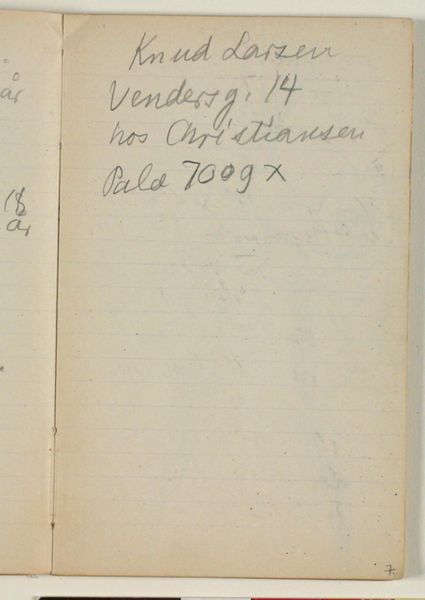 år
18
år
Knud Larsen
Vendersg. 14
hos Christiansen
Palæ 7009x
7.